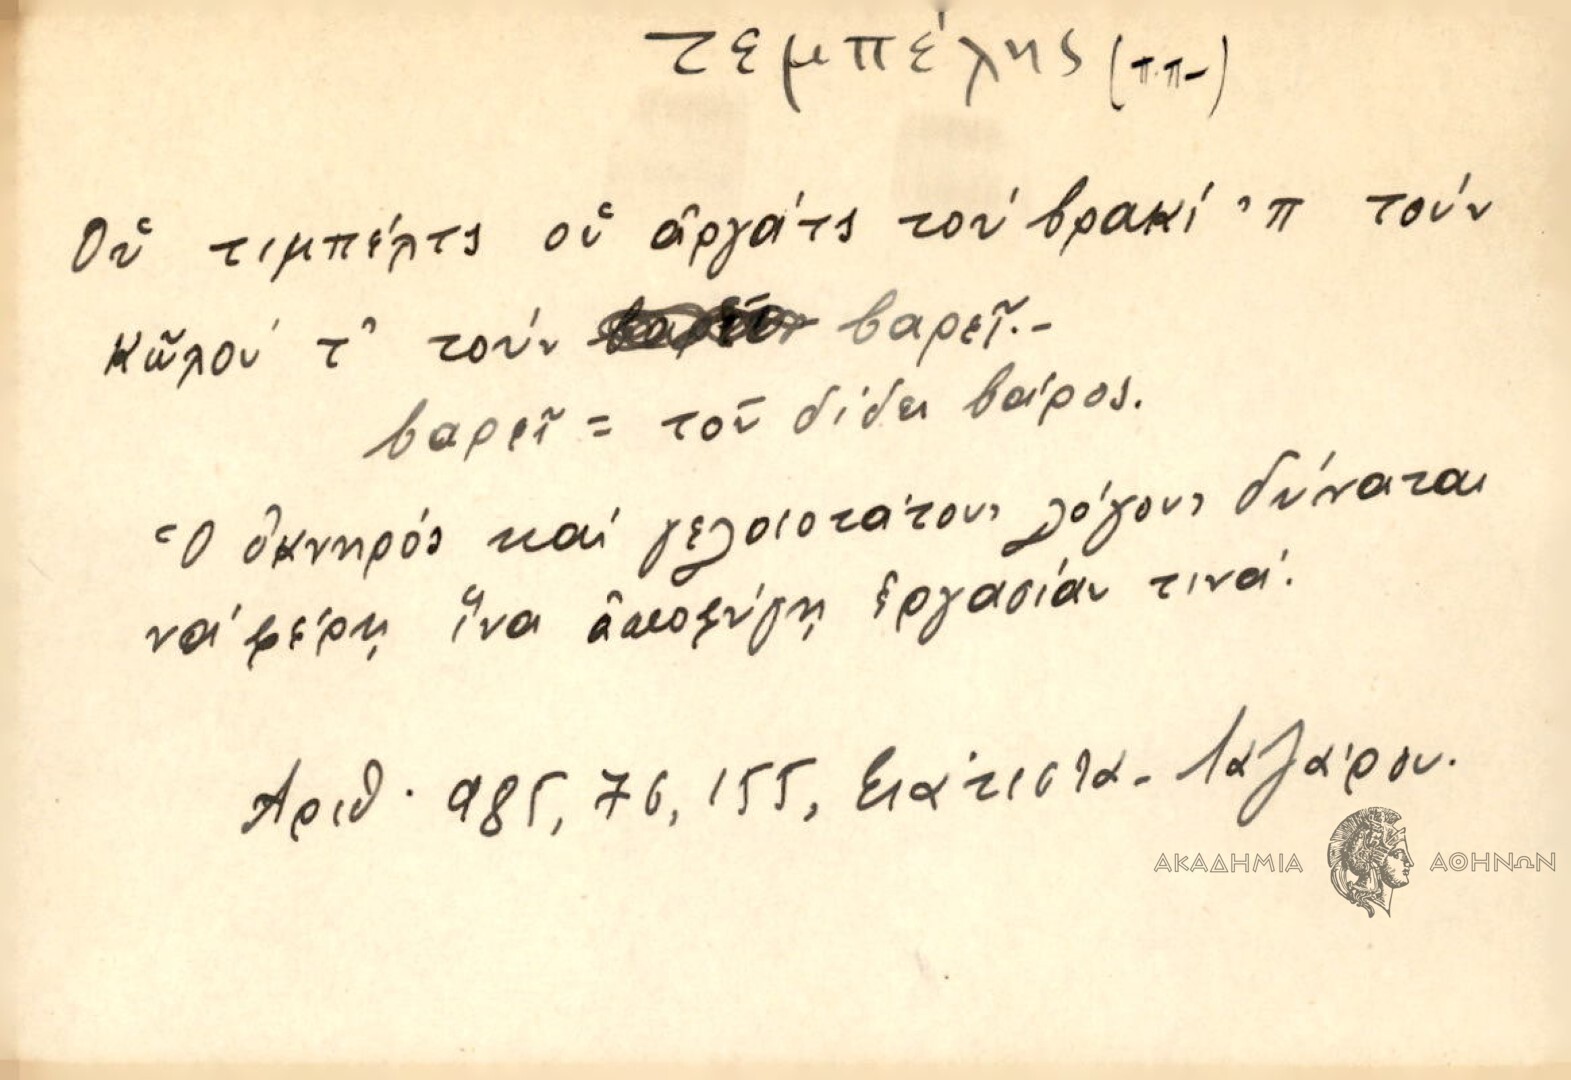 τεμπέλης (π.π-)
Οὑ τιμπέλτς οὑ ἀργάτς τού βρακί 'π τούν
κῶλού τ' τούν βαρεῖ.-
βαρεῖ = τοῦ δίδει βάρος.
Ὁ ὀκνηρός καί γελοιοτάτους λόγους δύναται
νά φέρῃ ἵνα ἀποφύγῃ ἐργασίαν τινά.
Ἀριθ. 985, 76, 155, Σιάτιστα- Λαζάρου.
ΑΚΑΔΗΜΙΑ ΑΘΗΝΩΝ